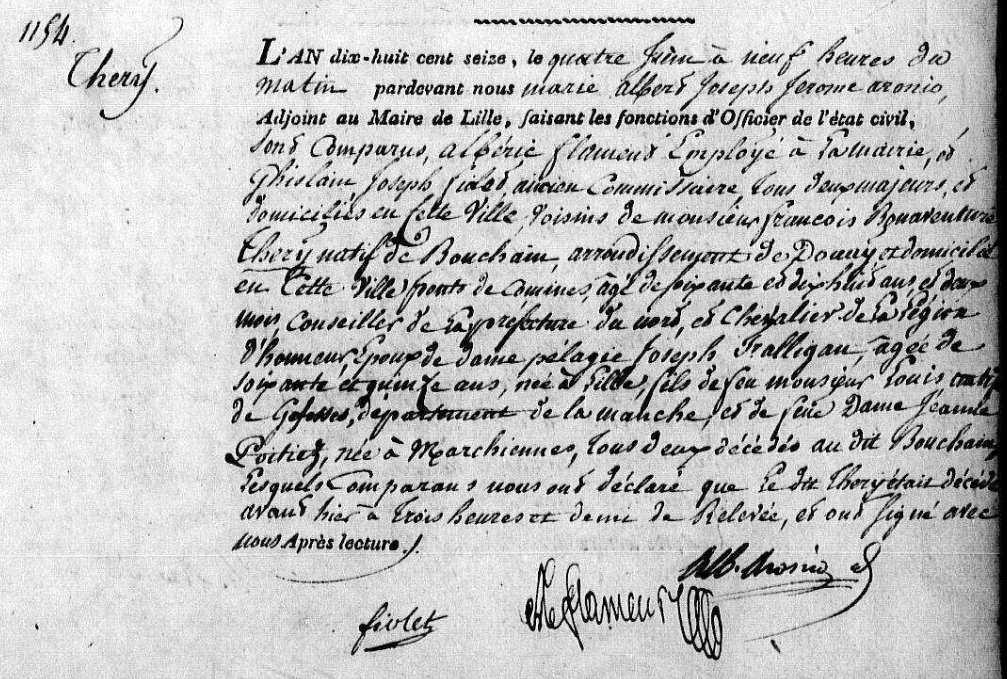 1154.
Thery.
L'AN dix-huit cent seize, le quatre Juin à neuf heures du
matin pardevant nous marie albert Joseph Jerome aronio,
Adjoint au Maire de Lille, faisant les fonctions d'Officier de l'état civil,
sont Comparus, albéric flament Employé à la mairie, et
Ghislain Joseph fiolet, ancien Commissaire tous deux majeurs, et
domiciliés en Cette Ville, Voisins de monsieur francois Bonaventure
Thery natif de Bouchain, arrondissement de Douay et domicilié
en Cette Ville ponts de Comines, âgé de soixante et dix huit ans et deux
mois, Conseiller de La préfecture du nord, et Chevalier de La Légion
d'honneur, Epoux de dame pélagie Joseph Tralligan, âgée de
soixante et quinze ans, née à Lille, fils de feu monsieur Louis natif
de département de la manche, et de feüe Dame Jeanne
Poitiez, née à Marchiennes, tous deux décédés au dit Bouchain,
Lesquels Comparans nous ont déclaré que Le dit Thery était décédé
avant hier à trois heures et demi de Relevée, et ont signé avec
nous Après lecture.
Alb. Aronio
fiolet
Ab flament